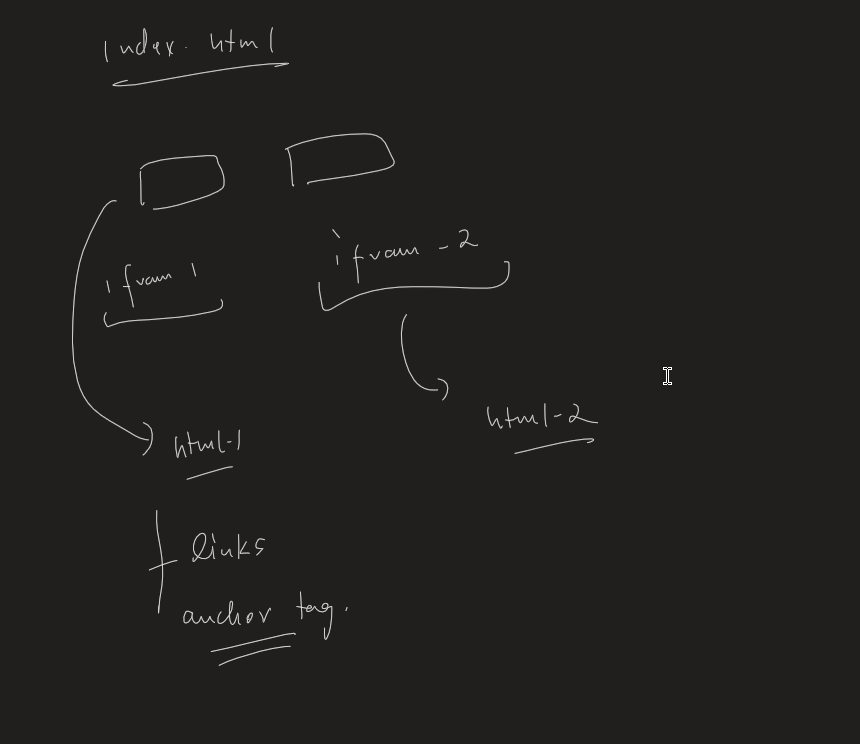 index.html
ifram 1
ifram - 2
html-1
html-2
links
anchor tag.